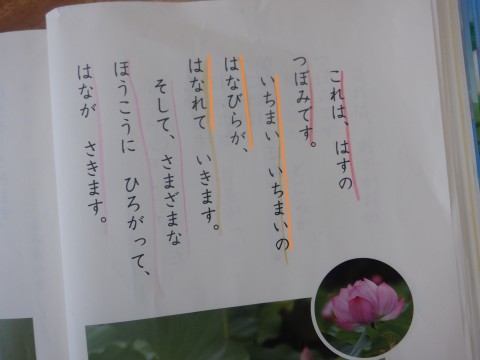 これは、はすの
つぼみです。
いちまい いちまいの
はなびらが、
はなれて いきます。
そして、さまざまな
ほうこうに ひろがって、
はなが さきます。